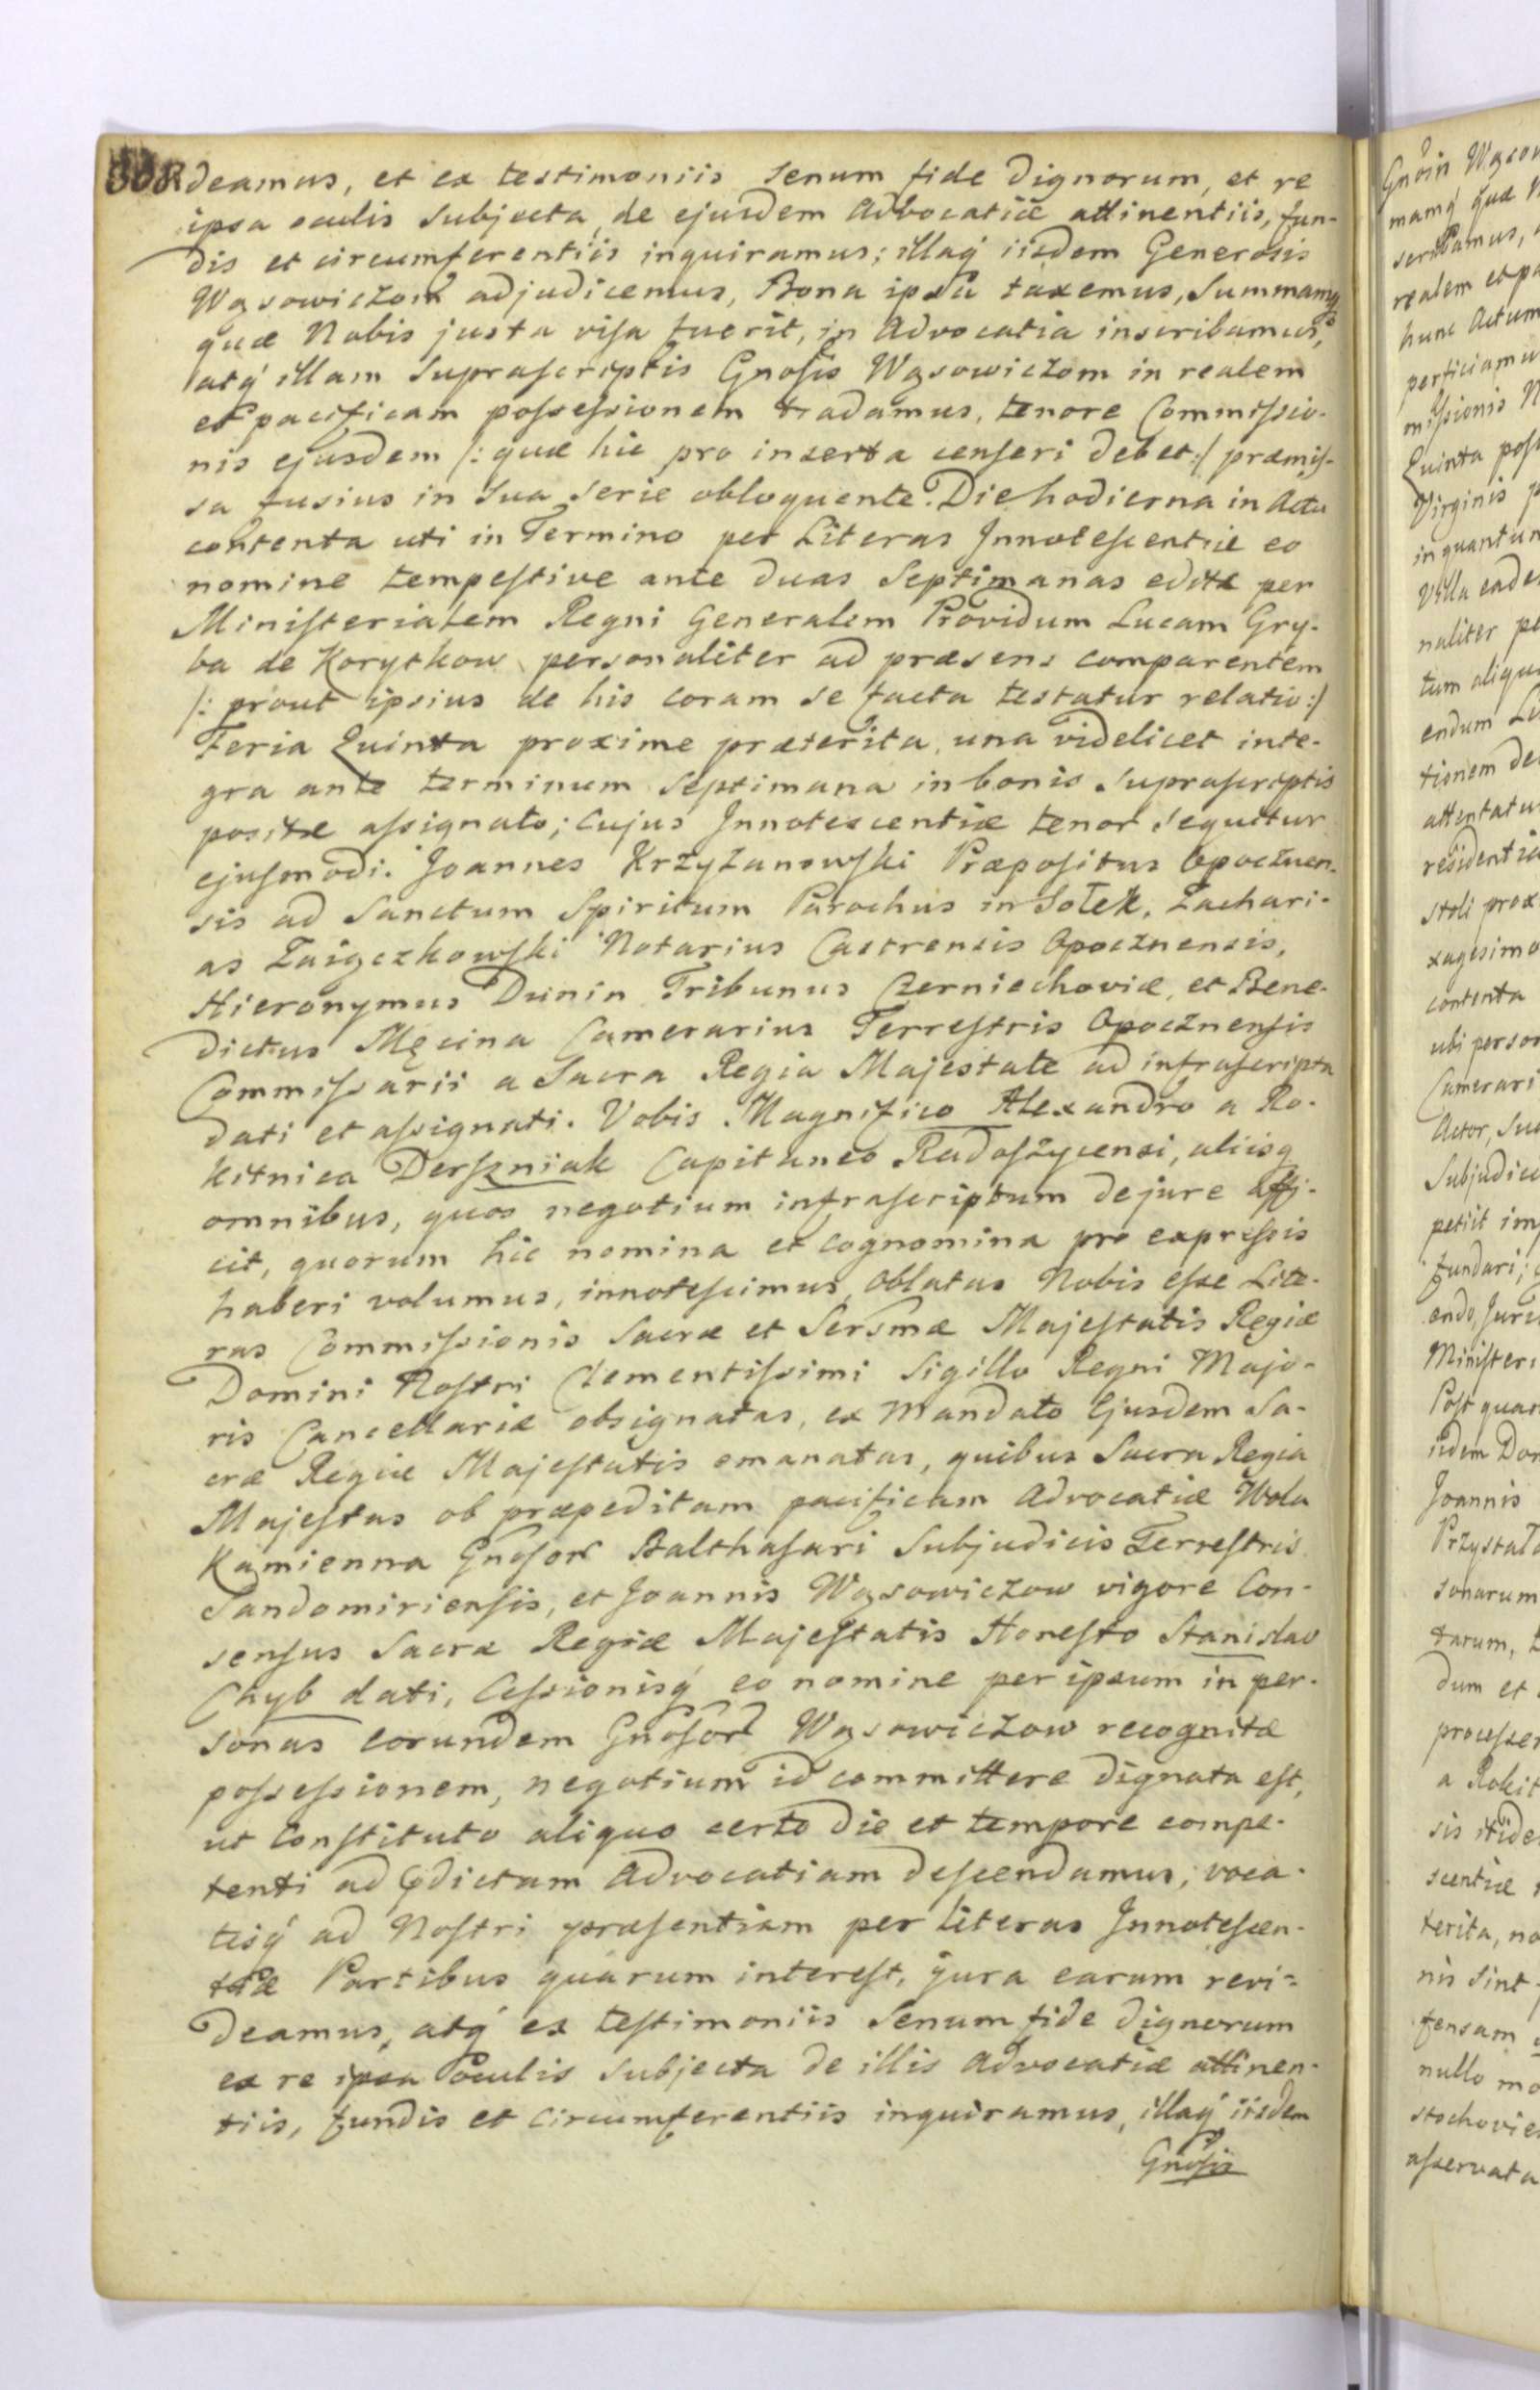 308. deamus, et ex testimoniis senum fide dignorum, et re
ipsa oculis subjecta, de ejusdem Advocatiæ attinentiis, fun-
dis et circumferentiis inquiramus; illaq́ iisdem Generosis
Wąsowiczom adjudicemus, Bona ipsa taxemus, Summamq́
quæ Nobis justa visa fuerit, in Advocatia inscribamus,
atq́ illam Suprascriptis Gnosis Wąsowiczom in realem
et pacificam possessionem tradamus, tenore Commissio-
nis ejusdem /: quæ hic pro inserta censeri debet :/ præmis-
sa fusius in sua serie obloquente. Die hodierna in Actu
contenta uti in Termino per Literas Innotescentiæ eo
nomine tempestive ante duas Septimanas editæ per
Ministerialem Regni Generalem Providum Lucam Gry-
ba de Korytkow personaliter ad præsens comparentem
/: prout ipsius de his coram se facta testatur relatio :/
Feria Quinta proxime præterita, una videlicet inte-
gra ante terminum Septimana in bonis suprascriptis
positæ assignato; cujus Innotescentiæ tenor sequitur
ejusmodi. Joannes Krzyżanowski Præpositus Opocznen-
sis ad Sanctum Spiritum Parochus in Sołek, Zachari-
as Zaigczkowski Notarius Castrensis Opocznensis,
Hieronymus Dunin Tribunus Czerniechoviæ, et Bene-
dictus Męcina Camerarius Terrestris Opocznensis
Commissarii a Sacra Regia Majestate ad infrascripta
dati et assignati. Vobis Magnifico Alexandro a Ro-
kitnica Derszniak Capitaneo Radoszycensi, aliisq́
omnibus, quos negotium infrascriptum de jure affi-
cit, quorum hic nomina et cognomina pro expressis
haberi volumus, innotescimus, oblatas Nobis esse Lite-
ras Commissionis Sacræ et Sersmæ Majestatis Regiæ
Domini Nostri Clementissimi Sigillo Regni Majo-
ris Cancellariæ obsignatas, ex Mandato Ejusdem Sa-
cræ Regiæ Majestatis emanatas, quibus Sacra Regia
Majestas ob præpeditam pacificam Advocatiæ Wola
Kamienna Gnosor Balthasari Subjudicis Terrestris
Sandomiriensis, et Joannis Wąsowiczow vigore Con-
sensus Sacræ Regiæ Majestatis Honesto Stanislao
Chyb dati, Cessionisq́ eo nomine per ipsum in per-
sonas eorundem Gnosor Wąsowiczow recognitæ
possessionem, negotium id committere dignata est,
ut Constituto aliquo certo die et tempore compe-
tenti ad pdictam Advocatiam descendamus, voca-
tisq́ ad Nostri præsentiam per literas Innotescen-
tiæ Partibus quarum interest, jura earum revi-
deamus, atq́ ex testimoniis Senum fide dignorum
ex re ipsa oculis subjecta de illis Advocatiæ attinen-
tiis, fundis et circumferentiis inquiramus, illaq́ iisdem
Gnosis